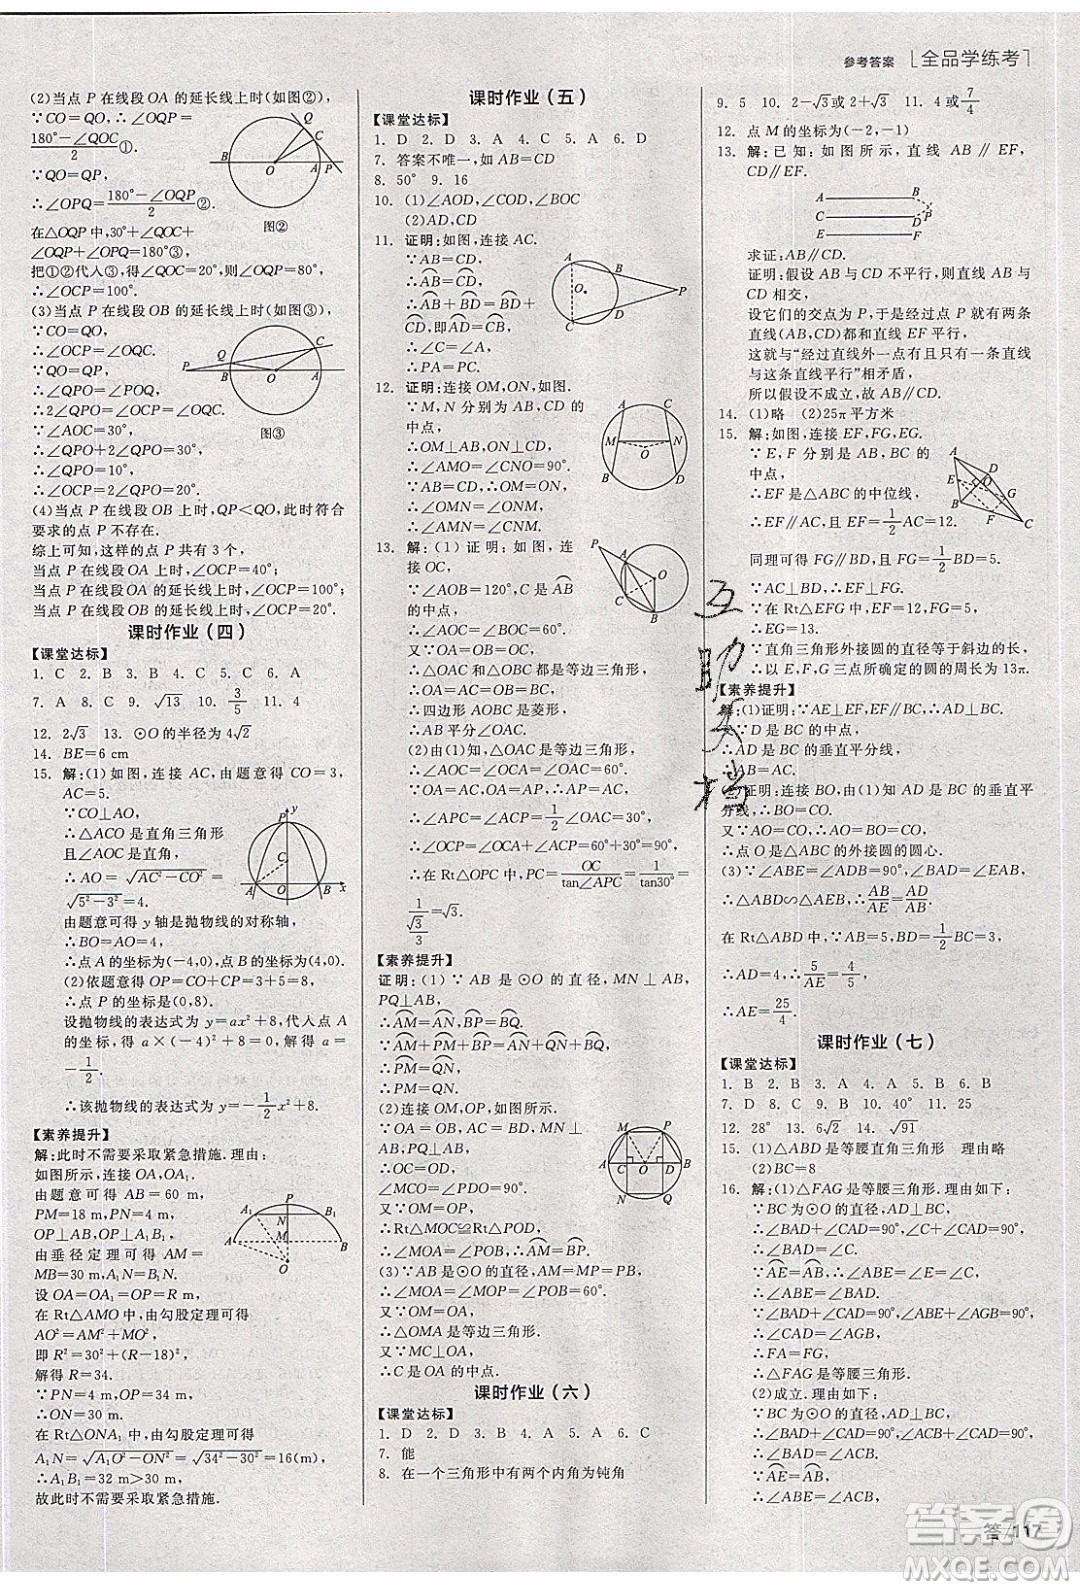 参考答案 [全品学练考]
(2)当点 P 在线段 OA 的延长线上时(如图②),
∵CO=QO,∴∠OQC=∠QCP=
180°-∠QOC/2①.
∵QO=QP,
∴∠OPQ=180°-∠OQP/2②.
在△OQP 中,∠QOC+
∠OQP+∠OPQ=180°③,
把①②代入③,得∠QOC=20°,则∠OQP=80°,
∴∠OCP=100°.
(3)当点 P 在线段 OB 的延长线上时(如图③),
∵CO=QO,
∴∠OCP=∠OQC.
∵QO=QP,
∴∠QPO=∠POQ,
∴2∠QPO=∠OCP=∠OQC.
∵∠AOC=30°,
∴∠QPO+2∠QPO=30°,
∴∠QPO=10°,
∴∠OCP=2∠QPO=20°.
(4)当点 P 在线段 OB 上时,QP<QO,此时符合
要求的点 P 不存在.
综上可知,这样的点 P 共有 3 个,
当点 P 在线段 OA 上时,∠OCP=40°;
当点 P 在线段 OA 的延长线上时,∠OCP=100°;
当点 P 在线段 OB 的延长线上时,∠OCP=20°.
图②
图③
课时作业(四)
【课堂达标】
1. C 2. B 3. B 4. C 5. C 6. A
7. A 8. C 9. √13 10. 3/5 11. 4
12. 2√3 13. ⊙O 的半径为 4√2
14. BE=6 cm
15. 解:(1)如图,连接 AC,由题意得 CO=3,
AC=5.
∵CO⊥AB,
∴△ACO 是直角三角形,
且∠AOC 是直角,
∴AO=√AC²-CO²=
√5²-3²=4.
由题意可得 y 轴是抛物线的对称轴,
∴BO=AO=4,
∴点 A 的坐标为(-4,0),点 B 的坐标为(4,0).
(2)依题意得 OP=CP+CO=3+5=8,
∴点 P 的坐标为(0,8).
设抛物线的表达式为 y=ax²+8,代入点 A
的坐标,得 a×(-4)²+8=0,解得 a=
-1/2.
∴该抛物线的表达式为 y=-1/2x²+8.
【素养提升】
解:此时不需要采取紧急措施.理由:
如图所示,连接 OA,OA₁.
由题意可得 AB=60 m,
PM=18 m,PN=4 m,
OP⊥AB,OP⊥A₁B₁,
由垂径定理可得 AM=
MB=30 m,A₁N=B₁N.
设 OA=OA₁=OP=R m,
在 Rt△AMO 中,由勾股定理可得
AO²=AM²+MO²,
即 R²=30²+(R-18)²,
解得 R=34.
∵PN=4 m,OP=R=34 m,
∴ON=30 m.
在 Rt△ONA₁ 中,由勾股定理可得
A₁N=√A₁O²-ON²=√34²-30²=16(m),
∴A₁B₁=32 m>30 m.
故此时不需要采取紧急措施.
课时作业(五)
【课堂达标】
1. D 2. D 3. A 4. C 5. A 6. D
7. 答案不唯一,如 AB=CD
8. 50° 9. 16
10. (1)∠AOD,∠COD,∠BOC
(2)AD,CD
11. 证明:如图,连接 AC.
∵AB=CD,
∴AB=CD,
∴AB+BD=BD+
CD,即AD=BC,
∴∠C=∠A,
∴PA=PC.
12. 证明:连接 OM,ON,如图.
∵M,N 分别为 AB,CD 的
中点,
∴OM⊥AB,ON⊥CD,
∴∠AMO=∠CNO=90°.
∵AB=CD,∴OM=ON,
∴∠OMN=∠ONM,
∴∠AMN=∠CNM.
13. 解:(1)证明:如图,连
接 OC,
∵∠AOB=120°,C 是AB
的中点,
∴∠AOC=∠BOC=60°.
又∵OA=OC=OB,
∴△OAC 和△OBC 都是等边三角形,
∴OA=AC=OB=BC,
∴四边形 AOBC 是菱形,
∴AB 平分∠OAC.
(2)由(1)知,△OAC 是等边三角形,
∵OA=AC,AP=OA,∴AP=AC,
∴∠APC=∠ACP=1/2∠OAC=30°,
∴∠OCP=∠OCA+∠ACP=60°+30°=90°,
∴在 Rt△OPC 中,PC=OC/tan∠APC=1/tan30°=
1/(√3/3)=√3.
【素养提升】
证明:(1)∵AB 是⊙O 的直径,MN⊥AB,
PQ⊥AB,
∴AM=AN,BP=BQ.
∵AM+PM+BP=AN+QN+BQ,
∴PM=QN,
∴PM=QN.
(2)连接 OM,OP,如图所示.
∵OA=OB,AC=BD,∴OC=OD.∵MN⊥
AB,PQ⊥AB,
∴∠MCO=∠PDO=90°.
又∵OM=OP,
∴Rt△MOC≌Rt△POD,
∴∠MOA=∠POB,∴AM=BP.
(3)∵AB 是⊙O 的直径,AM=MP=PB,
∴∠MOA=∠MOP=∠POB=60°.
又∵OM=OA,
∴△OMA 是等边三角形.
又∵MC⊥OA,
∴C 是 OA 的中点.
课时作业(六)
【课堂达标】
1. D 2. D 3. B 4. A 5. A 6. C
7. 能
8. 在一个三角形中有两个内角为钝角
9. 5 10. 2-√3或 2+√3 11. 4 或7/4
12. 点 M 的坐标为(-2,-1)
13. 解:已知:如图所示,直线 AB∥EF,
CD∥EF.
求证:AB∥CD.
证明:假设 AB 与 CD 不平行,则直线 AB 与
CD 相交,
设它们的交点为 P,于是经过点 P 就有两条
直线(AB,CD)都和直线 EF 平行,
这就与“经过直线外一点有且只有一条直线
与这条直线平行”相矛盾,
所以假设不成立,故 AB∥CD.
14. (1)略 (2)25π平方米
15. 解:如图,连接 EF,FG,EG.
∵E,F 分别为 AB,BC 的
中点,
∴EF 是△ABC 的中位线,
∴EF∥AC,EF=1/2AC=12.
同理可得 FG∥BD,FG=1/2BD=5.
∵AC⊥BD,∴EF⊥FG.
∵在 Rt△EFG 中,EF=12,FG=5,
∴EG=13.
∵直角三角形外接圆的直径等于斜边的长,
∴以 E,F,G 三点所确定的圆的周长为 13π.
【素养提升】
解:(1)证明:∵AE⊥EF,EF∥BC,
∴AD⊥BC.
又∵D 是 BC 的中点,
∴AD 是 BC 的垂直平分线,
∴AB=AC.
(2)证明:连接 BO,由(1)知 AD 是 BC 的垂直平
分线,∴BO=CO.
又∵AO=CO,∴AO=BO=CO,
∴点 O 是△ABC 的外接圆的圆心.
(3)∵∠ABE=∠ADB=90°,∠BAD=∠EAB,
∴△ABD∽△AEB,∴AB/AE=AD/AB.
在 Rt△ABD 中,∵AB=5,BD=1/2BC=3,
∴AD=4,∴5/AE=4/5,
∴AE=25/4.
课时作业(七)
【课堂达标】
1. B 2. B 3. A 4. A 5. B 6. B
7. D 8. B 9. B 10. 40° 11. 25
12. 28° 13. 6√2 14. √91
15. (1)△ABD 是等腰直角三角形 理由略
(2)BC=8
16. 解:(1)△FAG 是等腰三角形.理由如下:
∵BC 为⊙O 的直径,
∴∠BAD+∠CAD=90°.
∵AD⊥BC,∴∠C+∠CAD=90°,
∴∠BAD=∠C.
∵AE=AB,
∴∠ABE=∠C,
∴∠ABE=∠BAD.
∵∠BAD+∠CAD=90°,∠ABE+∠AGB=90°,
∴∠CAD=∠AGB,
∴FA=FG,
∴△FAG 是等腰三角形.
(2)成立.理由如下:
∵BC 为⊙O 的直径,
∴∠BAD+∠CAD=90°.
∵AD⊥BC,∴∠C+∠CAD=90°,
∴∠BAD=∠C.
∵AE=AB,∴∠ABE=∠C,
∴∠ABE=∠BAD.
互助文档
答案圈
MXQE.COM
答/117